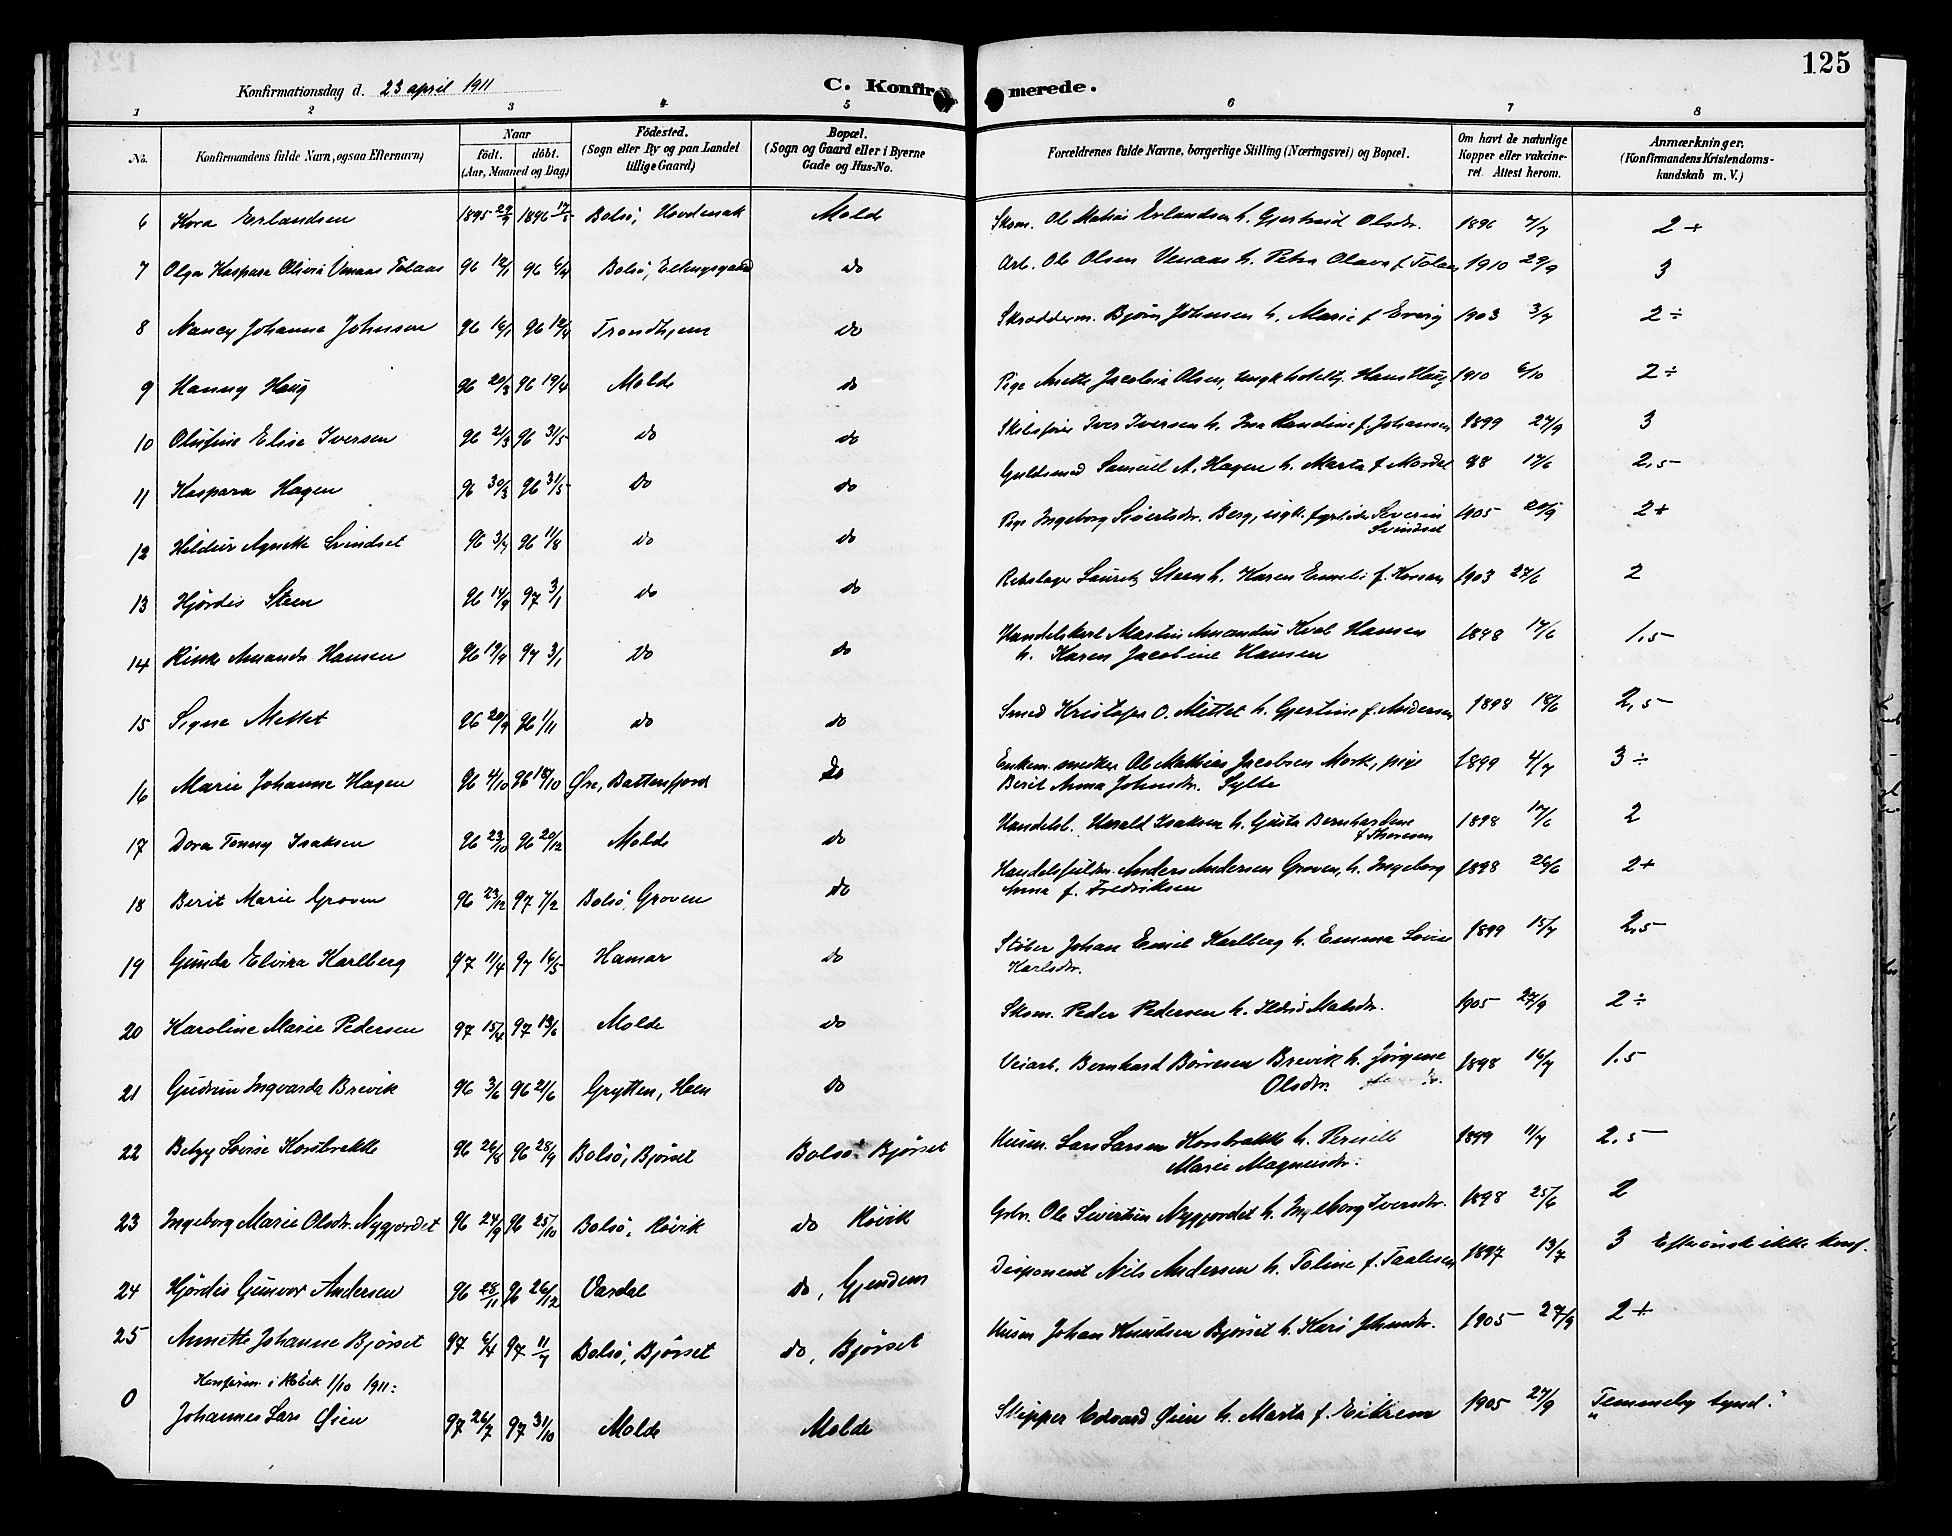 125
Konfirmationsdag d. 23 april 1911
C. Konfirmerede.
1 2 3 4 5 6 7 8
No.
Konfirmandens fulde Navn, ogsaa Efternavn)
Naar
födt. döbt.
(Aar, Maaned og Dag)
Födested.
(Sogn eller By og paa Landet
tillige Gaard)
Bopæl.
(Sogn og Gaard eller i Byerne
Gade og Hus-No.
Forældrenes fulde Navne, borgerlige Stilling (Næringsvei) og Bopæl.
Om havt de naturlige
Kopper eller vakcine-
ret. Attest herom.
Anmærkninger.
(Konfirmandens Kristendoms-
kundskab m. V.)
6 Kora Erlandsen 1895 1896 Bolsö, Molde Skom. Ole Matias Erlandsen h. Gjertrud Olsdr. 1896 7/7 2+
7 Olga Kaspara Olivia Venaas Tolaas 96 12/1 96 6/4 Bolsö, do Arb. Ole Olsen Venaas h. Petra Olava f. Tolaas 1910 29/9 3
8 Nancy Johanne Johnsen 96 16/1 96 12/4 Trondhjem do Skræderm. Björn Johnsen h. Marie f. 1903 3/7 2÷
9 Hanny Haug 96 20/3 96 19/4 Molde do Pige Anette Jacobia Olsen, Hans Haug 1910 6/10 2÷
10 Olufine Elise Iversen 96 2/3 96 31/5 do do Skibsförer Iver Iversen h. Ina Randine f. Johansen 1899 27/9 3
11 Kaspara Hagen 96 30/3 96 31/5 Do do Guldsmed Samuel A. Hagen h. Marta f. Mordal 98 17/6 2,5
12 Hildur Agnethe Svindset 96 3/7 96 11/8 do do Pige Ingeborg Sivertsdr. Berg, Severin 1905 20/9 2+
Svindset
13 Hjördis Steen 96 14/9 97 3/1 do do Rebslager Lauritz Steen h. Karen Emelie f. 1903 27/6 2
14 Amanda Hansen 96 19/9 97 3/1 Do do Martin Amandus Hansen 1898 17/6 1,5
h. Karen Jacobine Hansen
15 Signe Mettet 96 20/9 96 1/11 do do Smed Kristofer O. Mittet h. Gjertine f. Andersen 1898 18/6 2,5
16 Marie Johanne Hagen 96 4/10 96 18/10 Øre, Battenfjord Do Enkem. snedker Ole Mathias Jacobsen Mork, pige 1899 4/7 3÷
Berit Anna Johnsdr. Sylte
17 Dora Fonny Isaksen 96 23/10 96 20/12 Molde do Handelsb. Harald Isaksen h. Gusta Bernhardine 1898 17/6 2
f. Thoresen
18 Berit Marie Groven 96 23/12 97 7/2 Bolsö, Groven do Anders Andersen Groven, h. Ingeborg 1898 26/6 2+
Anna f. Fredriksen
19 Gunda Elvira Karlberg 97 11/4 97 16/5 Hamar do Stöber Johan Emil Karlberg h. Emma Lovise 1899 15/7 2,5
Karlsdr.
20 Karoline Marie Pedersen 97 15/4 97 13/6 Molde do Skom. Peder Pedersen h. Matsdr. 1905 27/9 2÷
21 Gudrun Ingvarda Brevik 96 3/6 96 21/6 Grytten, Hem do Veiarb. Bernhard Börresen Brevik h. Jörgine 1898 16/7 1.5
Olsdr.
22 Betzy Lovise Korsbrekke 96 26/8 96 28/9 Bolsö, Bjørset Bolsö Bjørset Husm. Lars Larsen Korsbrekke h. Pernille 1899 11/7 2,5
Marie Magnusdr.
23 Ingeborg Marie Olsdr. Nygjordet 96 24/9 96 25/10 Bolsö, Røvik do Røvik Gbr. Ole Sivertsen Nygjordet h. Ingeborg Iversdr. 1898 25/6 2
24 Hjördis Gunvor Andersen 96 28/11 96 26/12 Vardal do, Gjendem Disponent Nils Andersen h. Toline f. Taalesen 1897 13/7 3 Efter önske ikke konf.
25 Annette Johanne Bjørset 97 6/4 97 11/7 Bolsö, Bjørset do, Bjørset Husm Johan Knudsen Bjørset h. Kari Johnsdr. 1905 27/9 2+
Konfirm. i 1/10 1911:
0 Johannes Lars Øien 97 26/7 97 31/10 Molde Molde Skipper Edvard Øien h. Marta f. Eikrem 1905 27/9 "Temmelig tynd."